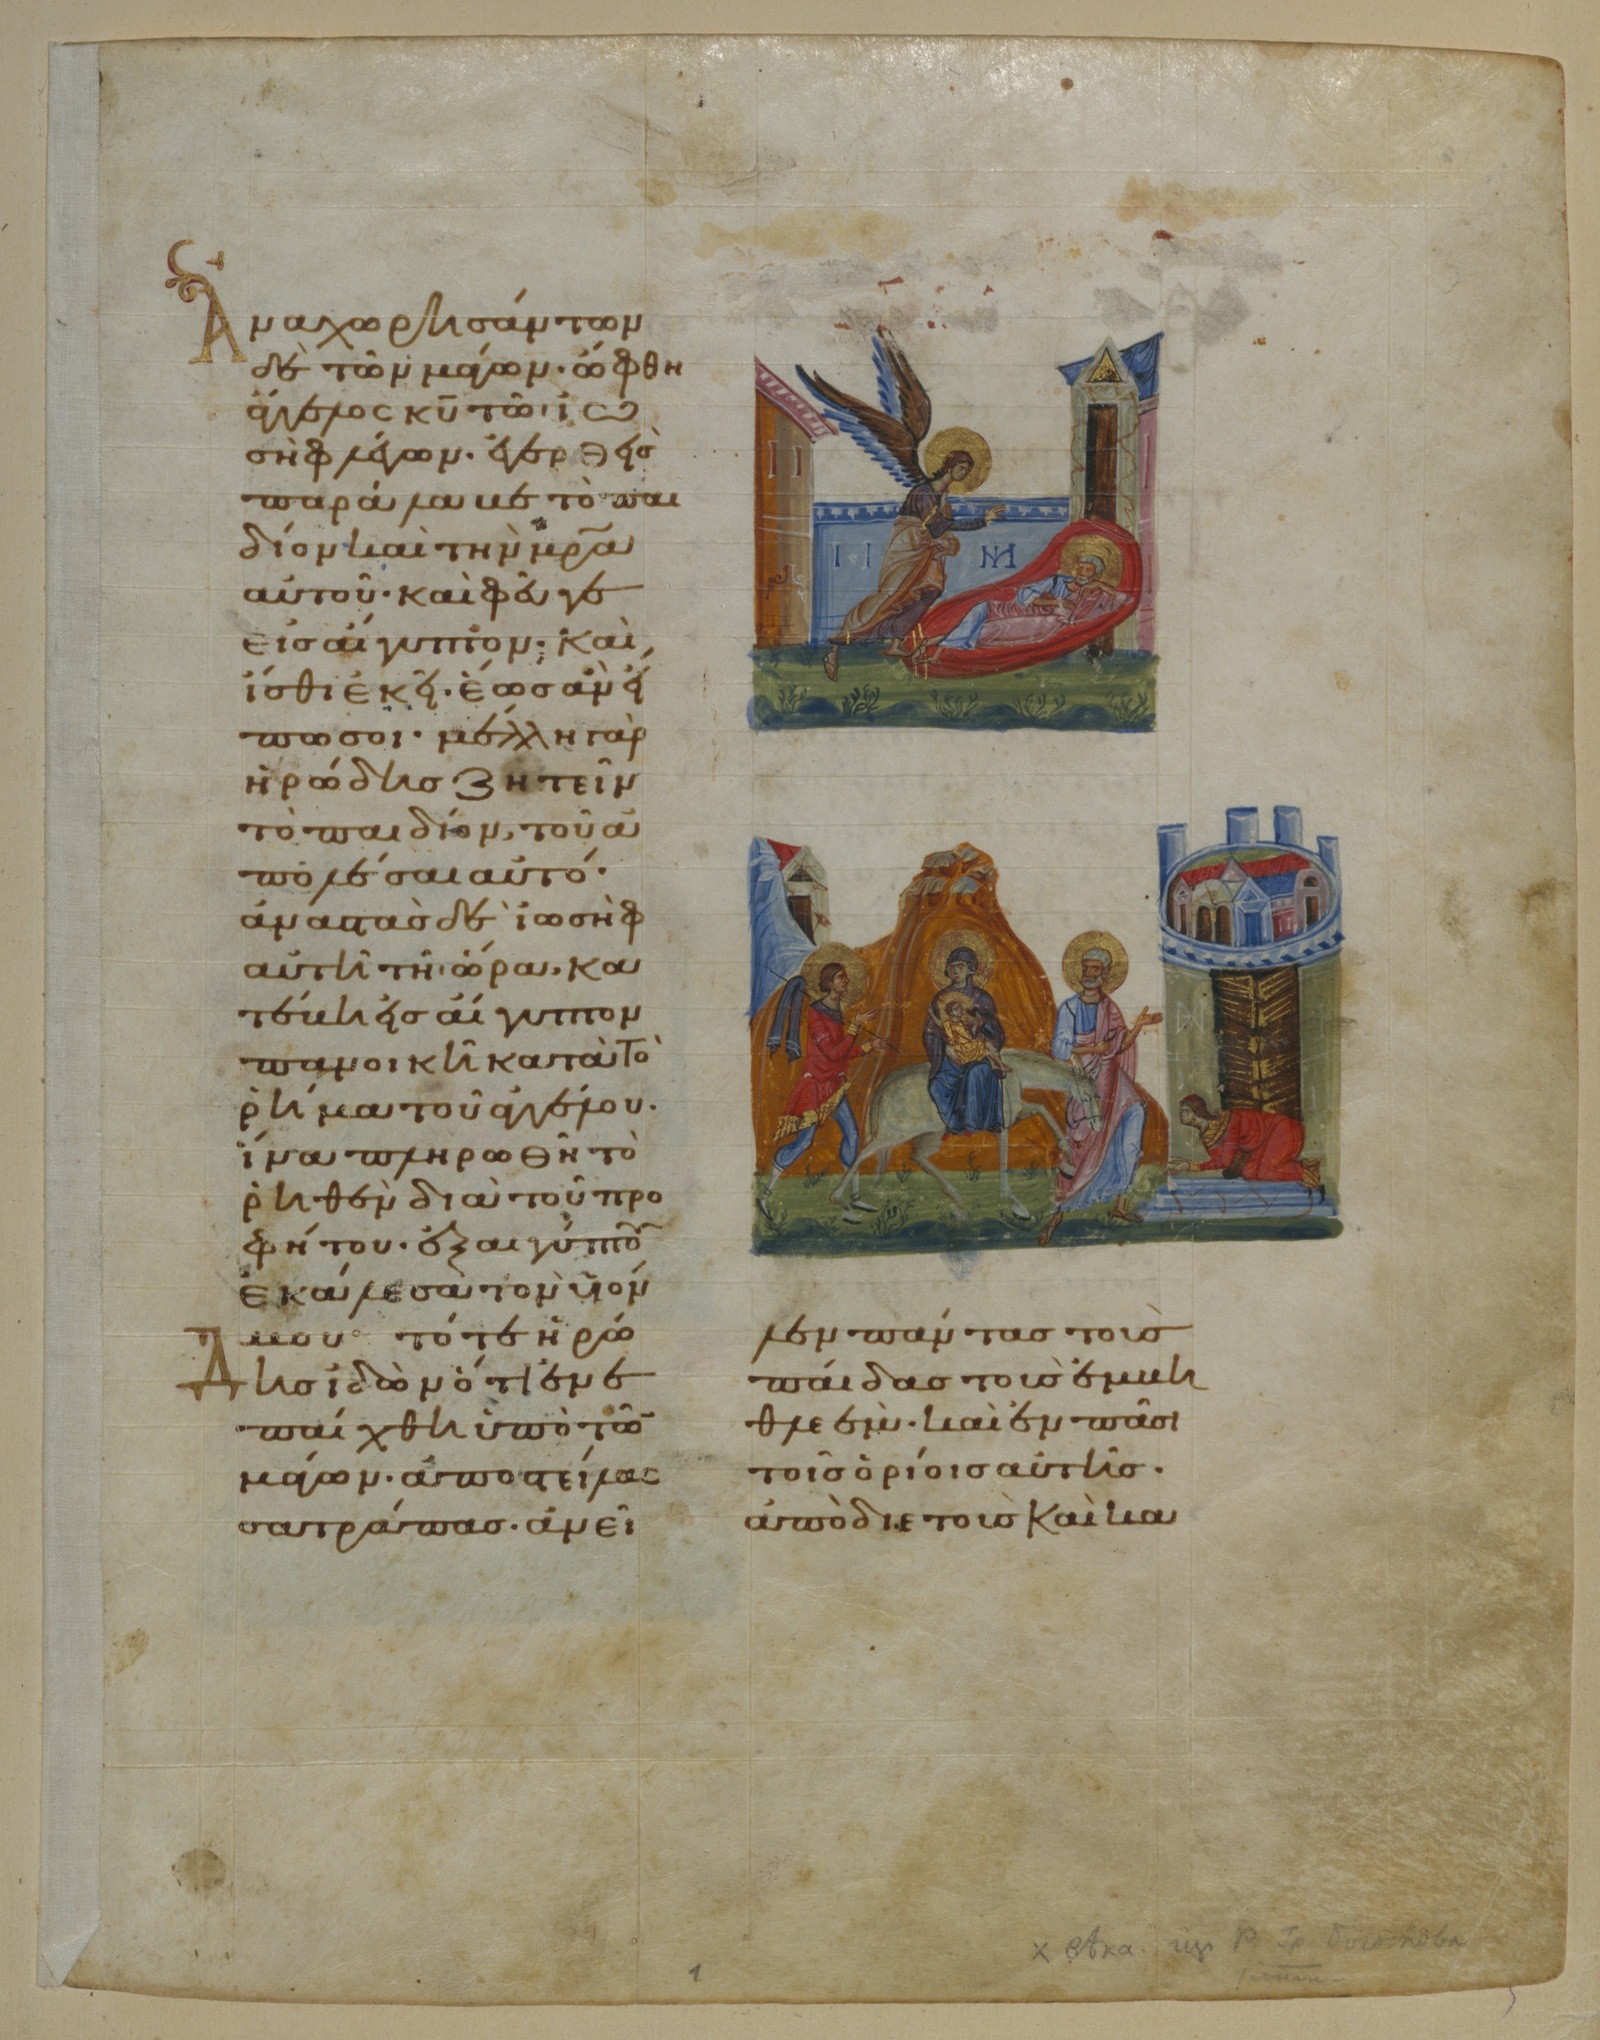 Αναχωρησάντων
δὲ τῶν μάγων· ὤφθη
ἄγγελος κ̅υ̅ τῶ ἰω
σὴφ λέγων· ἐγερθεὶσ
παράλαβε τὸ παι
δίον καὶ τὴν μ̅ρ̅α̅
αὐτοῦ· καὶ φεῦγε
εἰσ αἴγυπτον· καὶ
ἴσθι ἐκεῖ· ἕωσ ἂν εἴ
πω σοι· μέλλη γὰρ
ἡρώδησ ζητεῖν
τὸ παιδίον, τοῦ ἀ
πολέσαι αὐτό·
ἀναστὰσ δὲ ἰωσὴφ
αὐτῆ τῆ ὥρα, κα
τέβη εἰσ αἴγυπτον
πανοικῆ κατὰ τὸ
ῥῆμα τοῦ ἀγγέλου·
ἵνα πληρωθῆ τὸ
ῥηθὲν διὰ τοῦ προ
φήτου· ἐξ αἰγύπτου
ἐκάλεσα τὸν υἱόν
μου τότε ἡρώ
Δησ ἰδὼν ὅτι ἐνε
παίχθη ὑπὸ τῶν
μάγων· ἀποστείλας
σατράπασ· ἀνεῖ
λεν πάντασ τοὺσ
παίδασ τοὺσ ἐν βη
θλεέμ· καὶ ἐν πᾶσι
τοῖσ ὁρίοισ αὐτῆσ·
ἀπὸ διετοῦσ καὶ κα
1